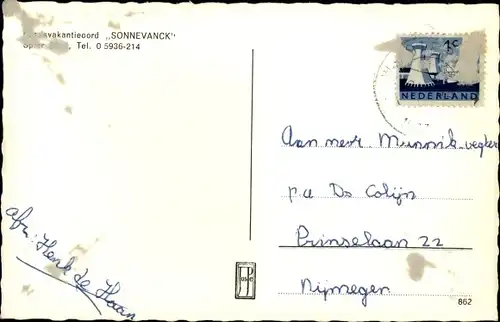 „SONNEVANCK"
Tel. 0 5936-214
4c
NEDERLAND
Aan mevr Munnik-Vegter
p.a Ds Colijn
Prinselaan 22
Nijmegen
afz: Henk de Haan
862